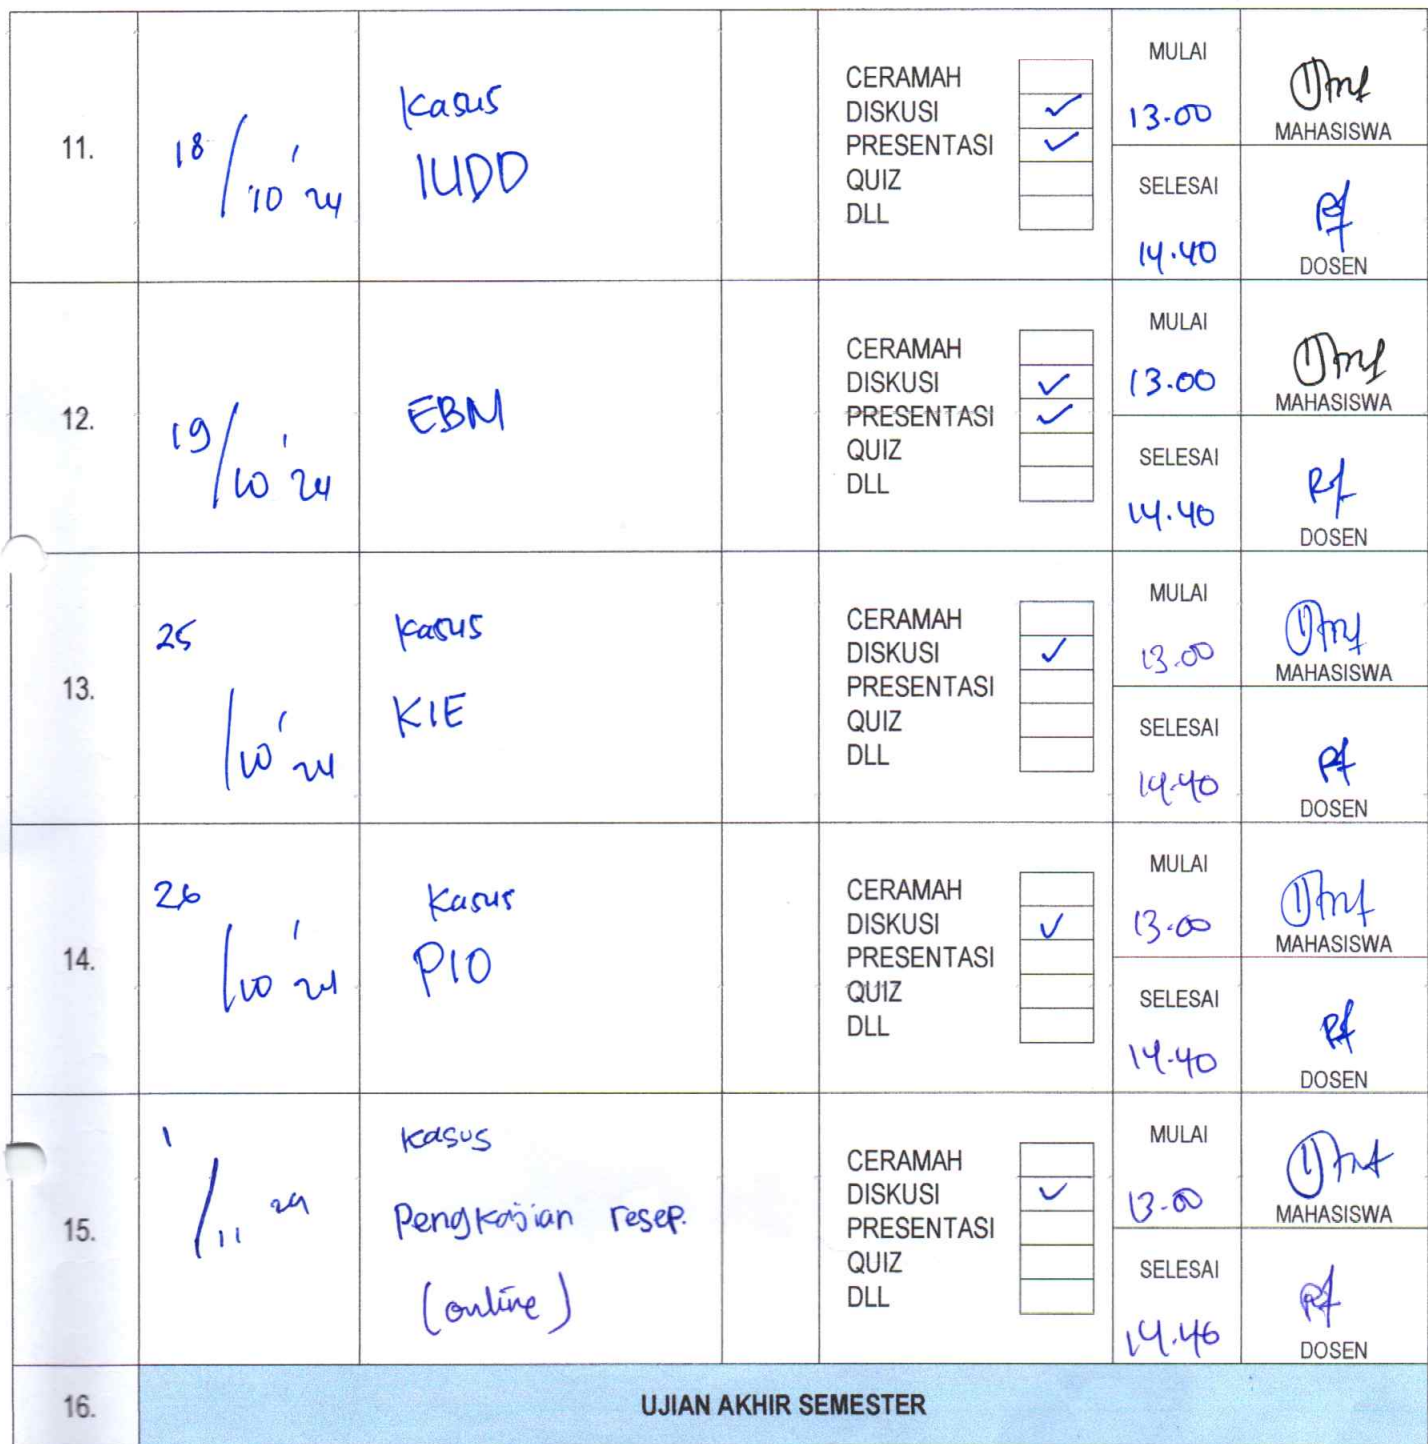 11.
18/10 '24
Kasus
IUDD
CERAMAH
DISKUSI ✓
PRESENTASI ✓
QUIZ
DLL
MULAI
13.00
SELESAI
14.40
MAHASISWA
DOSEN
12.
19/10 '24
EBM
CERAMAH
DISKUSI ✓
PRESENTASI ✓
QUIZ
DLL
MULAI
13.00
SELESAI
14.40
MAHASISWA
DOSEN
13.
25/10 '24
Kasus
KIE
CERAMAH
DISKUSI ✓
PRESENTASI
QUIZ
DLL
MULAI
13.00
SELESAI
14.40
MAHASISWA
DOSEN
14.
26/10 '24
Kasus
PIO
CERAMAH
DISKUSI ✓
PRESENTASI
QUIZ
DLL
MULAI
13.00
SELESAI
14.40
MAHASISWA
DOSEN
15.
1/11 24
Kasus
Pengkajian resep.
(online)
CERAMAH
DISKUSI ✓
PRESENTASI
QUIZ
DLL
MULAI
13.00
SELESAI
MAHASISWA
DOSEN
16.
UJIAN AKHIR SEMESTER